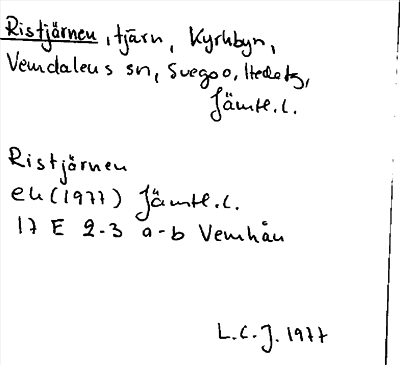 Ristjärnen, tjärn, Kyrkbyn,
Vemdalens sn, Svego o, Hede tg,
Jämtl.l.
Ristjärnen
ek (1977) Jämtl.l.
17 E 2-3 a-b Vemhån
L.C.J. 1977